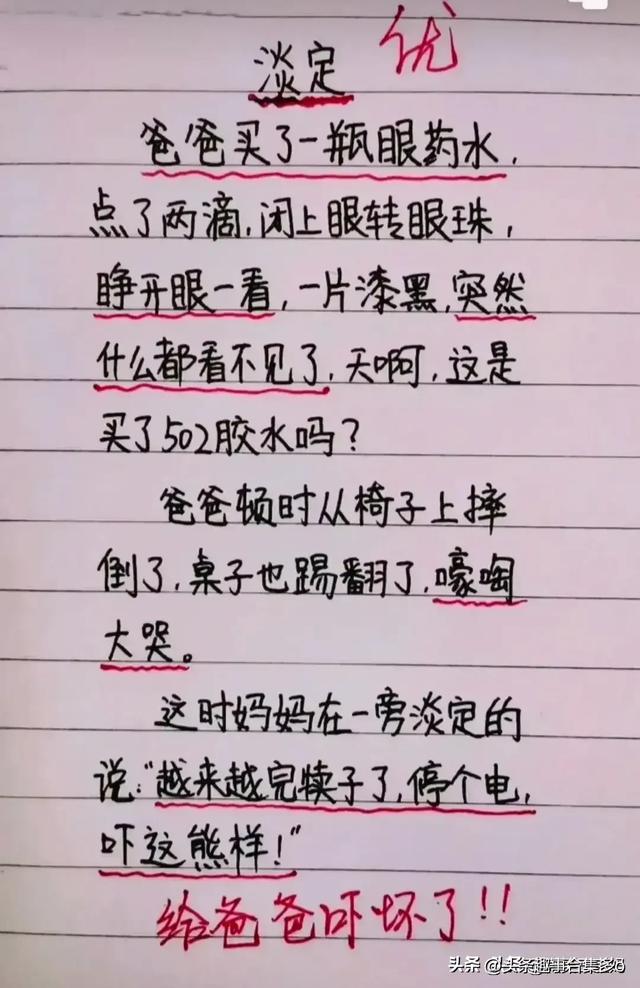 淡定
优
爸爸买了一瓶眼药水，
点了两滴，闭上眼转眼珠，
睁开眼一看，一片漆黑，突然
什么都看不见了，天啊，这是
买了502胶水吗？
爸爸顿时从椅子上摔
倒了，桌子也踢翻了，嚎啕
大哭。
这时妈妈在一旁淡定的
说：“越来越完犊子了，停个电，
吓这熊样！”
给爸爸吓坏了！！
头条